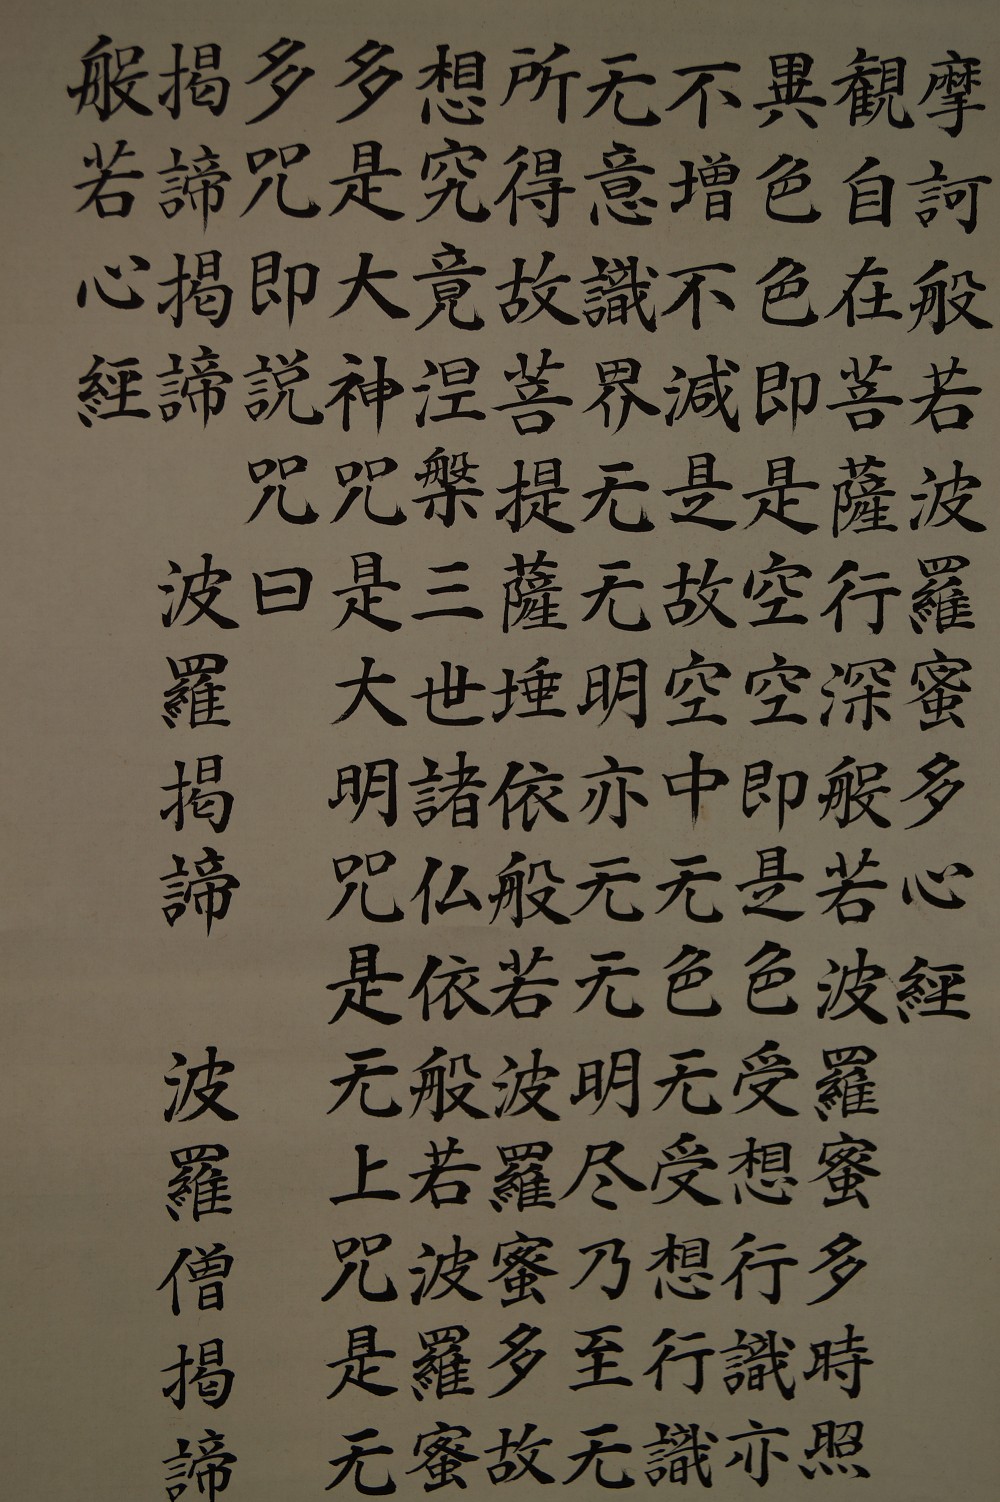 摩訶般若波羅蜜多心経
観自在菩薩行深般若波羅蜜多時照
異色色即是空空即是色受想行識亦
不増不減是故空中无色无受想行識
无意識界无无明亦无无明尽乃至无
所得故菩提薩埵依般若波羅蜜多故
想究竟涅槃三世諸仏依般若波羅蜜
多是大神咒是大明咒是无上咒是无
多咒即説咒曰
揭諦揭諦 波羅揭諦 波羅僧揭諦
般若心経